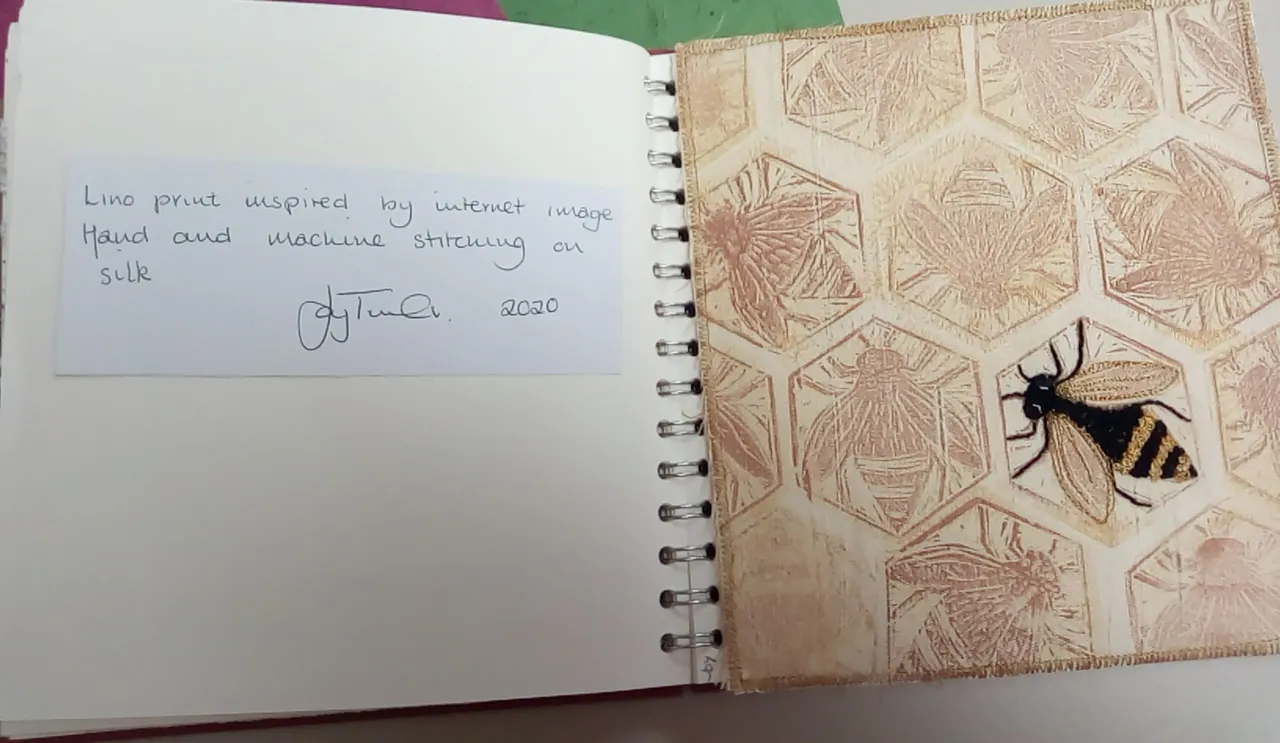 Lino print inspired by internet image
Hand and machine stitching on
silk
2020